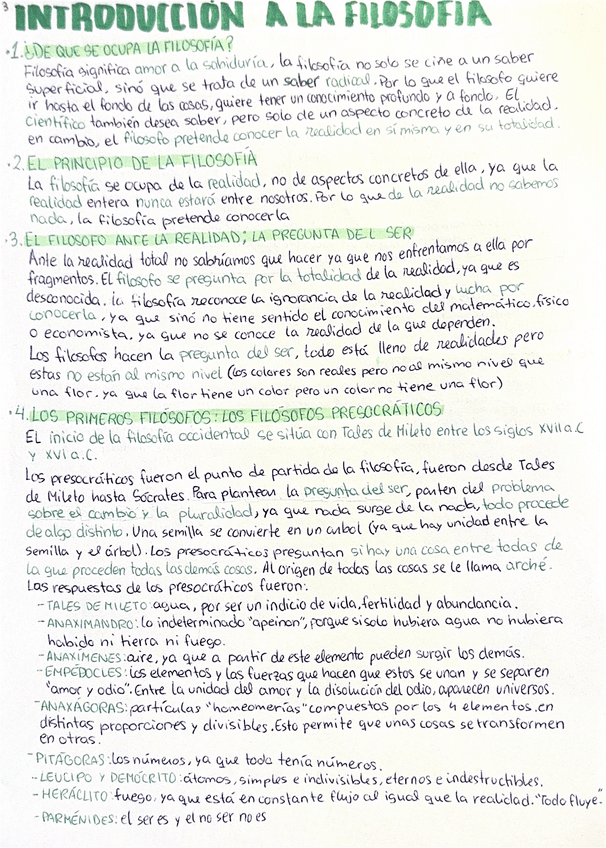 3
INTRODUCCIÓN A LA FILOSOFÍA
·1.¿DE QUE SE OCUPA LA FILOSOFÍA?
Filosofía significa amor a la sabiduría, la filosofía no solo se ciñe a un saber
superficial, sinó que se trata de un saber radical. Por lo que el filósofo quiere
ir hasta el fondo de las cosas, quiere tener un conocimiento profundo y a fondo. El
científico también desea saber, pero solo de un aspecto concreto de la realidad,
en cambio, el filósofo pretende conocer la realidad en sí misma y en su totalidad.
·2.EL PRINCIPIO DE LA FILOSOFÍA
La filosofía se ocupa de la realidad, no de aspectos concretos de ella, ya que la
realidad entera nunca estará entre nosotros. Por lo que de la realidad no sabemos
nada, la filosofía pretende conocerla
·3.EL FILOSOFO ANTE LA REALIDAD; LA PREGUNTA DEL SER
Ante la realidad total no sabríamos que hacer ya que nos enfrentamos a ella por
fragmentos. El filósofo se pregunta por la totalidad de la realidad, ya que es
desconocida. la filosofía reconoce la ignorancia de la realidad y lucha por
conocerla, ya que sinó no tiene sentido el conocimiento del matemático, físico
o economista, ya que no se conoce la realidad de la que dependen.
Los filósofos hacen la pregunta del ser, todo está lleno de realidades pero
estas no están al mismo nivel (los colores son reales pero no al mismo nivel que
una flor, ya que la flor tiene un color pero un color no tiene una flor)
·4.LOS PRIMEROS FILÓSOFOS: LOS FILÓSOFOS PRESOCRÁTICOS
EL inicio de la filosofía occidental se sitúa con Tales de Mileto entre los siglos XVII a.C
y XVI a.C.
Los presocráticos fueron el punto de partida de la filosofía, fueron desde Tales
de Mileto hasta Sócrates. Para plantear la pregunta del ser, parten del problema
sobre el cambio y la pluralidad, ya que nada surge de la nada, todo procede
de algo distinto. Una semilla se convierte en un arbol (ya que hay unidad entre la
semilla y el árbol). Los presocráticos preguntan si hay una cosa entre todas de
la que proceden todas las demás cosas. Al origen de todas las cosas se le llama arché.
Las respuestas de los presocráticos fueron:
-TALES DE MILETO: agua, por ser un indicio de vida, fertilidad y abundancia.
-ANAXIMANDRO: lo indeterminado "apeinon", porque si solo hubiera agua no hubiera
habido ni tierra ni fuego.
-ANAXÍMENES: aire, ya que a partir de este elemento pueden surgir los demás.
-EMPÉDOCLES: los elementos y las fuerzas que hacen que estos se unan y se separen
"amor y odio". Entre la unidad del amor y la disolución del odio, aparecen universos.
-ANAXÁGORAS: partículas "homeomerías" compuestas por los 4 elementos, en
distintas proporciones y divisibles. Esto permite que unas cosas se transformen
en otras.
-PITÁGORAS: los números, ya que todo tenía números.
-LEUCIPO Y DEMÓCRITO: átomos, simples e indivisibles, eternos e indestructibles.
-HERÁCLITO: fuego, ya que está en constante flujo al igual que la realidad. "Todo fluye".
-PARMÉNIDES: el ser es y el no ser no es